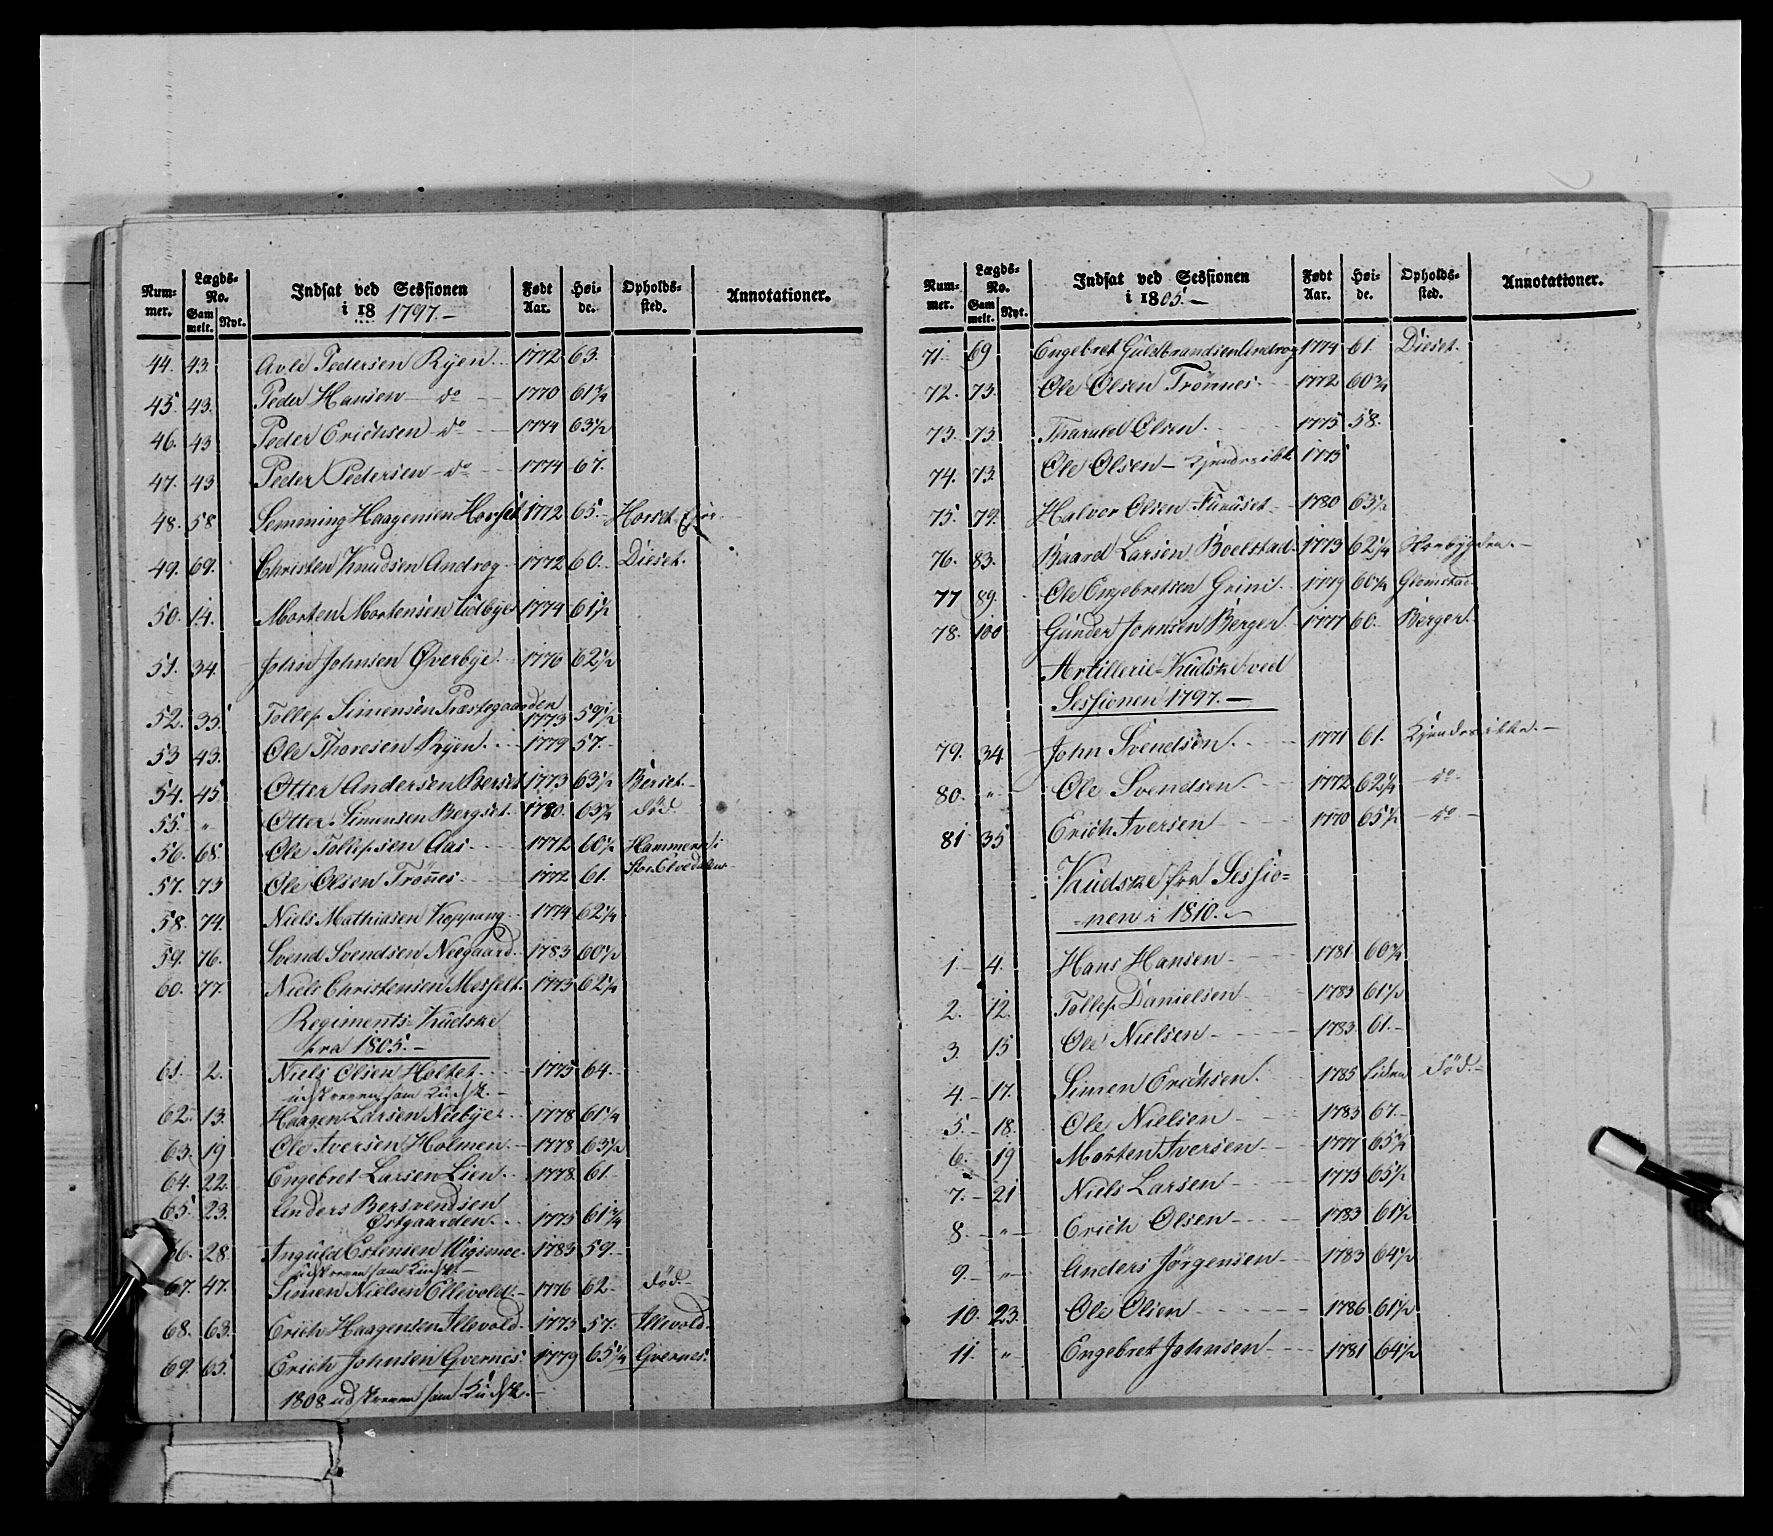 Num- mer. Lægds- No. Gam melt. Nyt. Indsat ved Sessionen i 18 1797.– Født Aar. Høi- de. Opholds- sted. Annotationer.
44. 43. Avle Pedersen Ryen 1772 63.
45. 43. Peder Hansen – do 1770 61 3/4
46. 43 Peder Erichsen – do 1774 63 1/2
47. 43 Peder Pedersen – do 1774 67.
48. 58 Semming Haagensen Horset 1772 65. Horset
49. 69. Christen Knudsen Androg 1772 60. Dieset.
50. 14. Morten Mortensen Udbye 1774 61 1/2
51. 34. John Johnsen Øverbye. 1776 62 1/2
52. 35. Tollef Simensen Præstegaarden 1773 59 1/2
53 43. Ole Thoresen Ryen. 1779 57.
54. 45 Otter Andersen Berset 1773 63 1/2 Berset
55. " Otter Simensen Bergset. 1780. 63 3/4 död
56. 68. Ole Tollefsen Aas 1772 60 1/2 Hammeren i
57. 73 Ole Olsen Trönes 1772 61. Stor Elvedalen
58. 74. Niels Mathiasen Koppang 1774 62 1/4
59. 76. Svend Svendsen Neegaard. 1783 60 1/2
60. 77. Niels Christensen Messelt. 1773 62 1/4
Regiments-Kudske
fra 1805.–
61. 2. Niels Olsen Holtet 1775 64.
udskreven som Kudsk.–
62. 13. Haagen Larsen Neebye 1778 61 1/4
63. 19 Ole Iversen Holmen. 1778 63 1/2
64. 22. Engebret Larsen Lien. 1778 61.
65. 23. Anders Bersvendsen
Østgaarden. 1775 61 3/4
66. 28. Inguld Estensen Wigsmoe. 1783 59.
udskreven som Kudsk.–
67. 47. Simen Nielsen Ellevold. 1776 62 död.–
68. 63. Erich Haagensen Illevold. 1773 57. Illevold.
69. 65. Erich Johnsen Gvernes. 1779 65 1/4 Gvernes.
1808 udskreven som Kudsk.–
Num- mer. Lægds- No. Gam melt. Nyt. Indsat ved Sessionen i 1805.– Født Aar. Høi- de. Opholds- sted. Annotationer.
71. 69 Engebret Guldbrandsen Androg 1774 61. Dieset.
72. 73. Ole Olsen Trönnes 1772 60 3/4
73. 73 Olsen. 1775 58.
74. 73. Ole Olsen – kjendes ikke 1775
75. 79. Halvor Olsen Furuset 1780 63 1/2
76. 83. Baard Larsen Boelstad. 1773 62 1/4
77 89. Ole Engebretsen Grini. 1779 60 1/4 Glomstad
78. 100 Gunder Johnsen Berger 1777 60. Berger.
Artillerie-Kudske ved
Sessionen 1797.–
79. 34. John Svendsen. 1771 61. Kjendes ikke.–
80. " Ole Svendsen 1772 62 1/4 – do –
81 35 Erich Iversen 1770 65 1/2 – do –
Kudske fra Sessio-
nen i 1810.
1. 4. Hans Hansen 1781 60 3/4
2. 12. Tollef Danielsen 1783 61 1/2
3. 15 Ole Nielsen 1783 61.–
4. 17. Simen Erichsen. 1785 liden död.–
5. 18. Ole Nielsen 1783 67.–
6. 19 Morten Iversen 1777 65 3/4
7. 21 Niels Larsen 1775 65 1/2
8. " Erich Olsen 1783 61 1/2
9. " Anders Jörgensen 1783 64 1/2
10. 23. Ole Olsen 1786 61 1/2
11. " Engebret Johnsen 1781 64 1/2